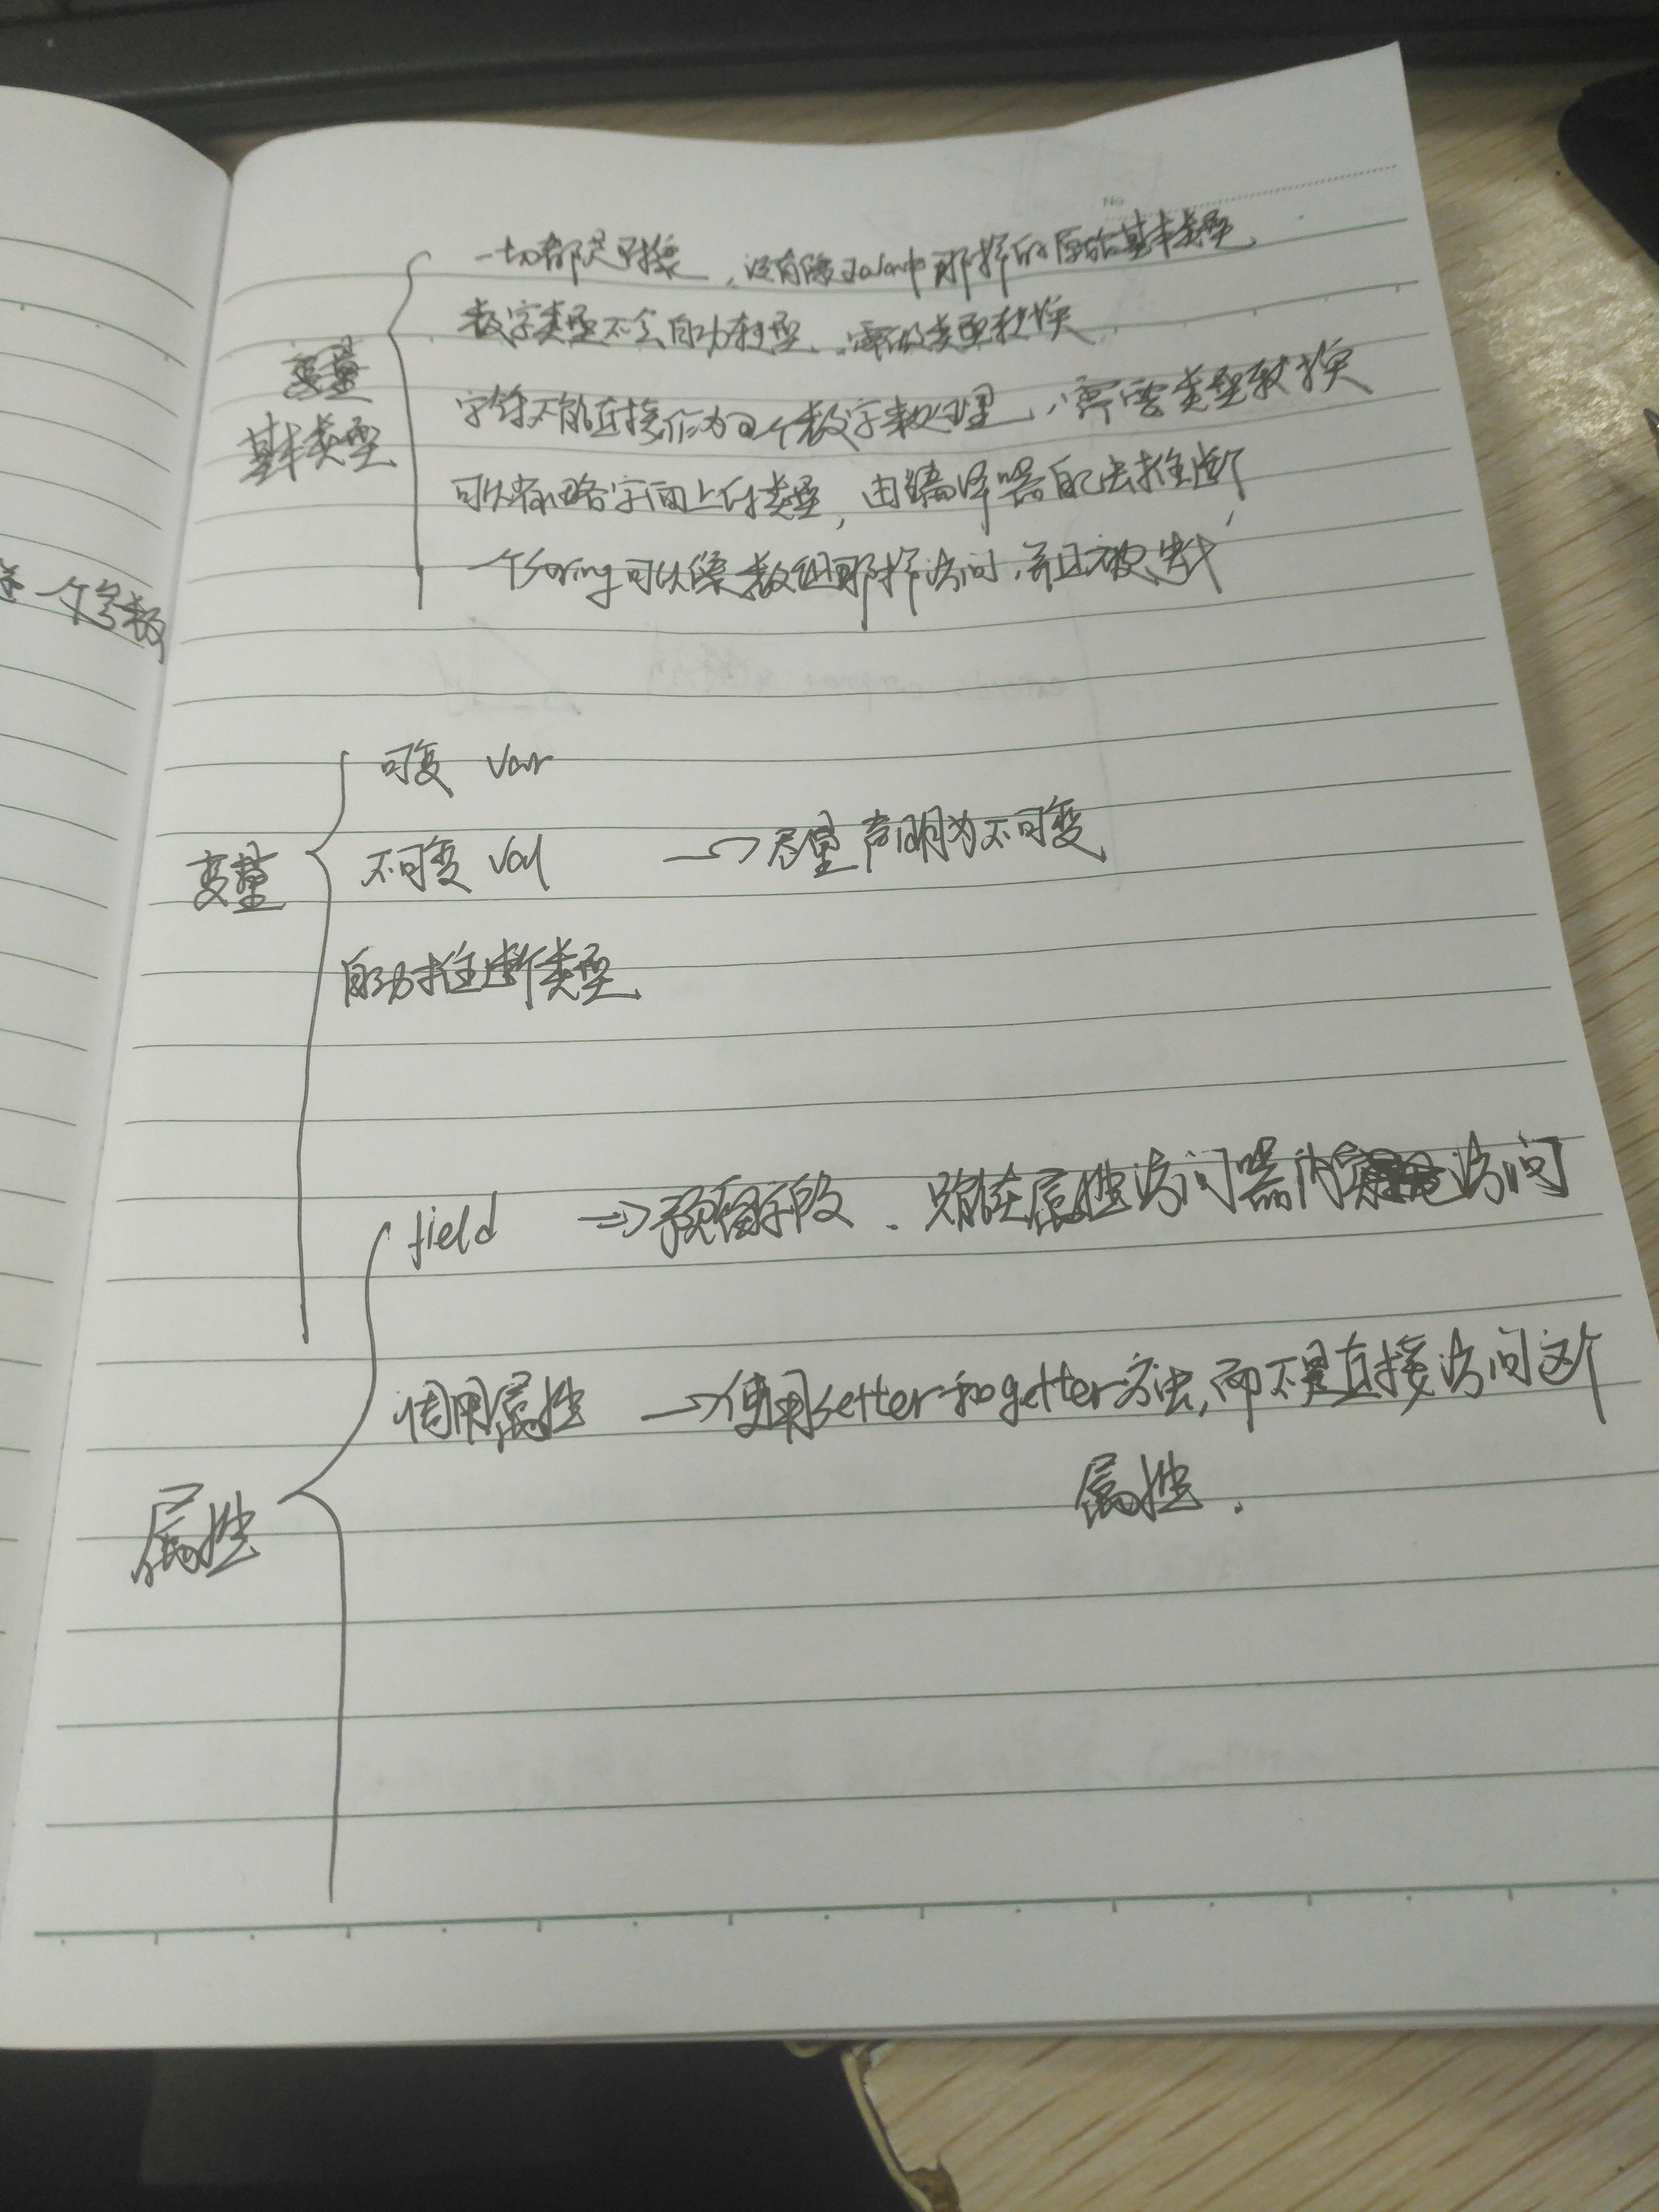 No
一切都是对象，没有像Java中那样的原始基本类型
数字类型不会自动转型，需做类型转换
变量
基本类型
字符不能直接作为一个数字来处理，需要类型转换
可以省略字面上的类型，由编译器自己去推断
一个String可以像数组那样访问，并且被迭代
一个参数
可变 var
变量
不可变 val → 尽量声明为不可变
自动推断类型
field ⇒ 预留字段．只能在属性访问器内访问
调用属性 → 使用setter和getter方法，而不是直接访问这个
属性．
属性